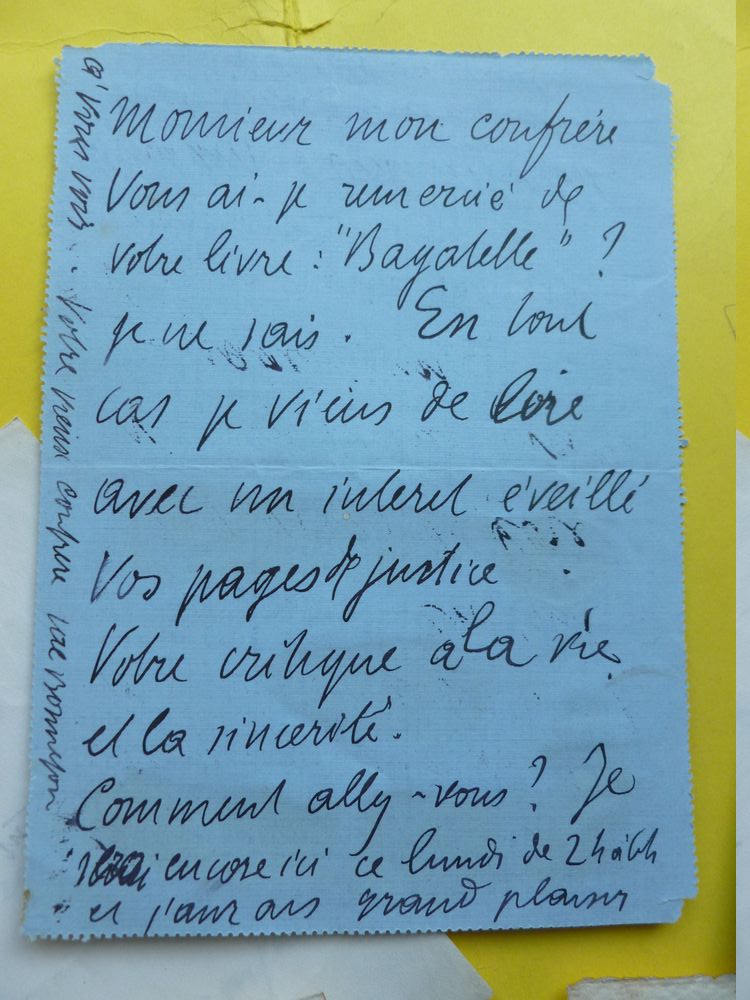 Monsieur mon confrère
Vous ai-je remercié de
votre livre : "Bagatelle" ?
je ne sais. En tout
cas je viens de lire
avec un interet éveillé
Vos pages de justice
Votre critique a la vie
et la sincerité.
Comment allez-vous? Je
serai encore ici ce lundi de 2h à 6h
et j'aurais grand plaisir
à vous voir. Votre vieux confrère